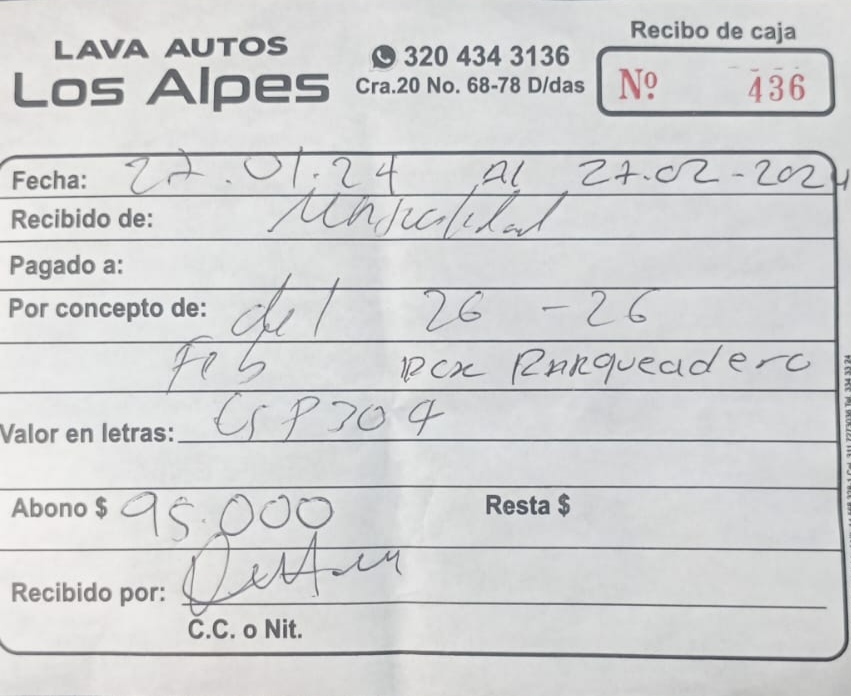 LAVA AUTOS
Los Alpes
320 434 3136
Cra.20 No. 68-78 D/das
Recibo de caja
Nº 436
Fecha: 27.01.24 Al 27.02-2024
Recibido de: Mensualidad
Pagado a:
Por concepto de: del 26 - 26
Feb por Parqueadero
Valor en letras: GSP304
Abono $ 95.000 Resta $
Recibido por:
C.C. o Nit.